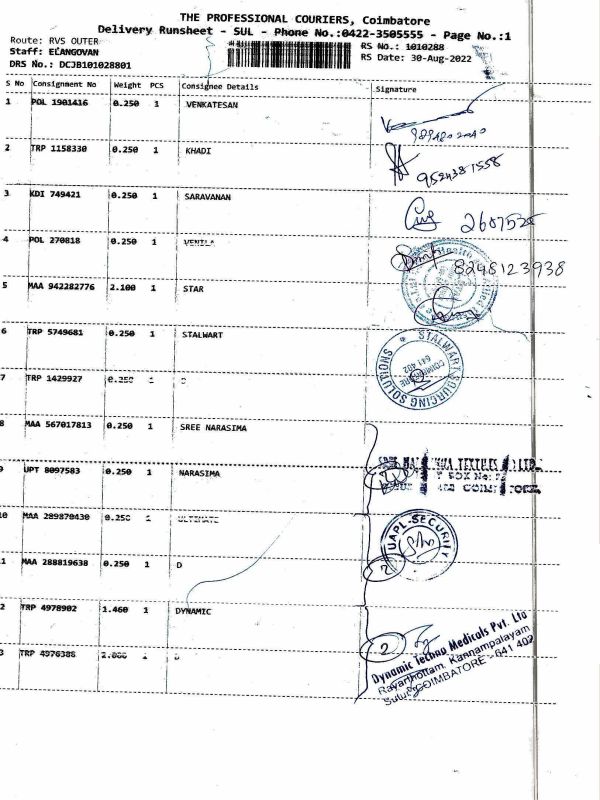 THE PROFESSIONAL COURIERS, Coimbatore
Delivery Runsheet - SUL - Phone No.:0422-3505555 - Page No.:1
Route: RVS OUTER
RS No.: 1010288
Staff: ELANGOVAN
RS Date: 30-Aug-2022
DRS No.: DCJB101028801
S No Consignment No Weight PCS Consignee Details Signature
1 POL 1901416 0.250 1 VENKATESAN
9894802040
2 TRP 1158330 0.250 1 KHADI
9524381558
3 KDI 749421 0.250 1 SARAVANAN
4 POL 270818 0.250 1 VENILA
8248123938
5 MAA 942282776 2.100 1 STAR
6 TRP 5749681 0.250 1 STALWART
STALWART SOURCING SOLUTIONS
COIMBATORE
641 402
7 TRP 1429927 0.250 1 D
8 MAA 567017813 0.250 1 SREE NARASIMA
9 UPT 8097583 0.250 1 NARASIMA
TEXTILES
BOX No:
10 MAA 289870430 0.250 1 ULTIMATE
UAPL-SECURITY
11 MAA 288819638 0.250 1 D
2
12 TRP 4978902 1.460 1 DYNAMIC
2
13 TRP 4976388 2.000 1 D
Dynamic Techno Medicals Pvt. Ltd
Rayarthottam, Kannampalayam
Sulur, COIMBATORE - 641 402